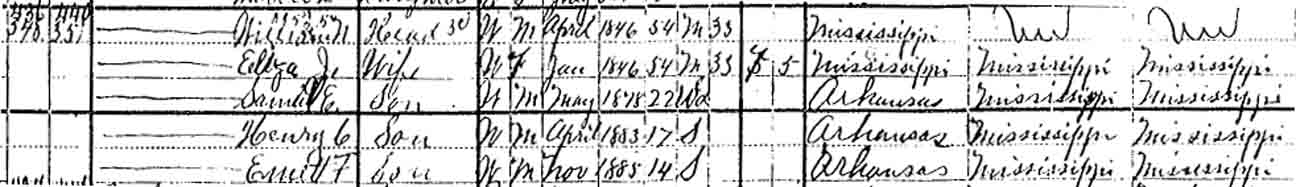 William N Head W M April 1846 54 M 33 Mississippi Un Un
Eliza J. Wife W F Jan 1846 54 M 33 8 5 Mississippi Mississippi Mississippi
Samuel E. Son W M May 1878 22 Wd Arkansas Mississippi Mississippi
Henry C Son W M April 1883 17 S Arkansas Mississippi Mississippi
Emett F Son W M Nov 1885 14 S Arkansas Mississippi Mississippi